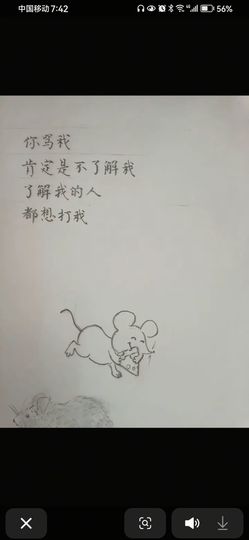 中国移动 7:42
56%
你骂我
肯定是不了解我
了解我的人
都想打我